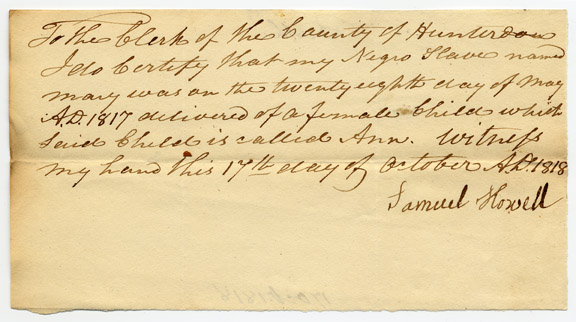 To the Clerk of the County of Hunterdon
I do Certify that my Negro Slave named
mary was on the twenty eighth day of May
A.D. 1817 delivered of a female Child which
Said Child is called Ann. Witness
my hand this 17th day of October A.D. 1818
Samuel Howell